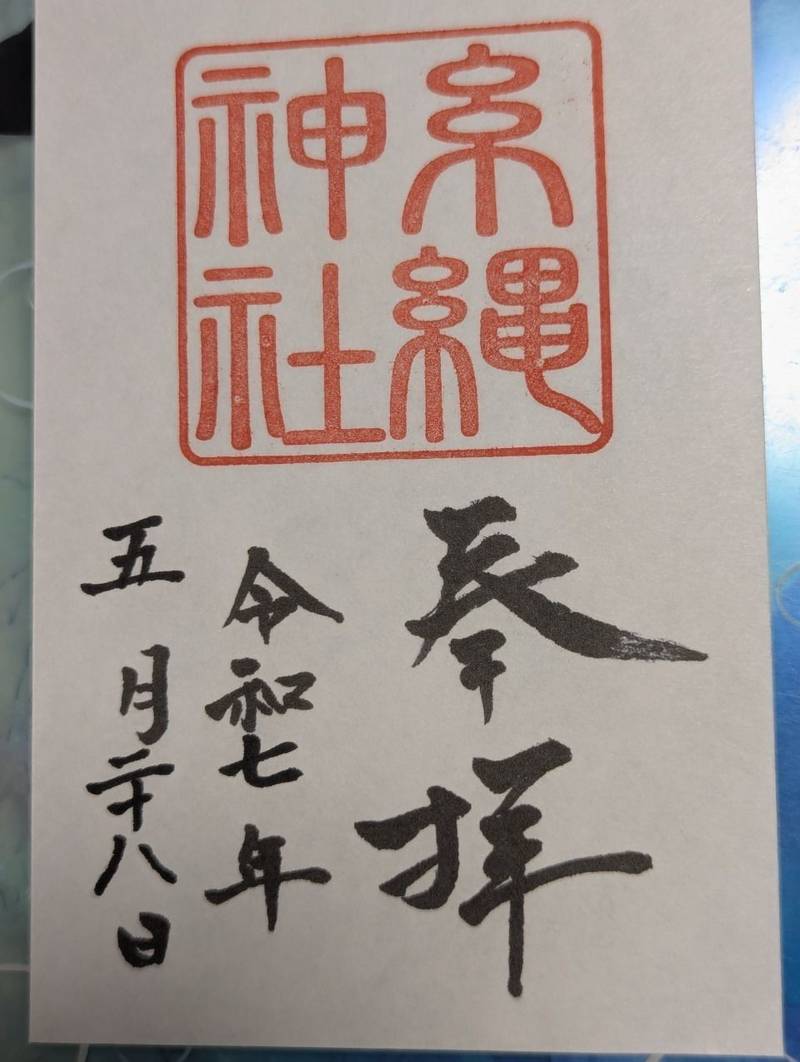 糸縄
神社
奉拝
令和七年
五月二十八日